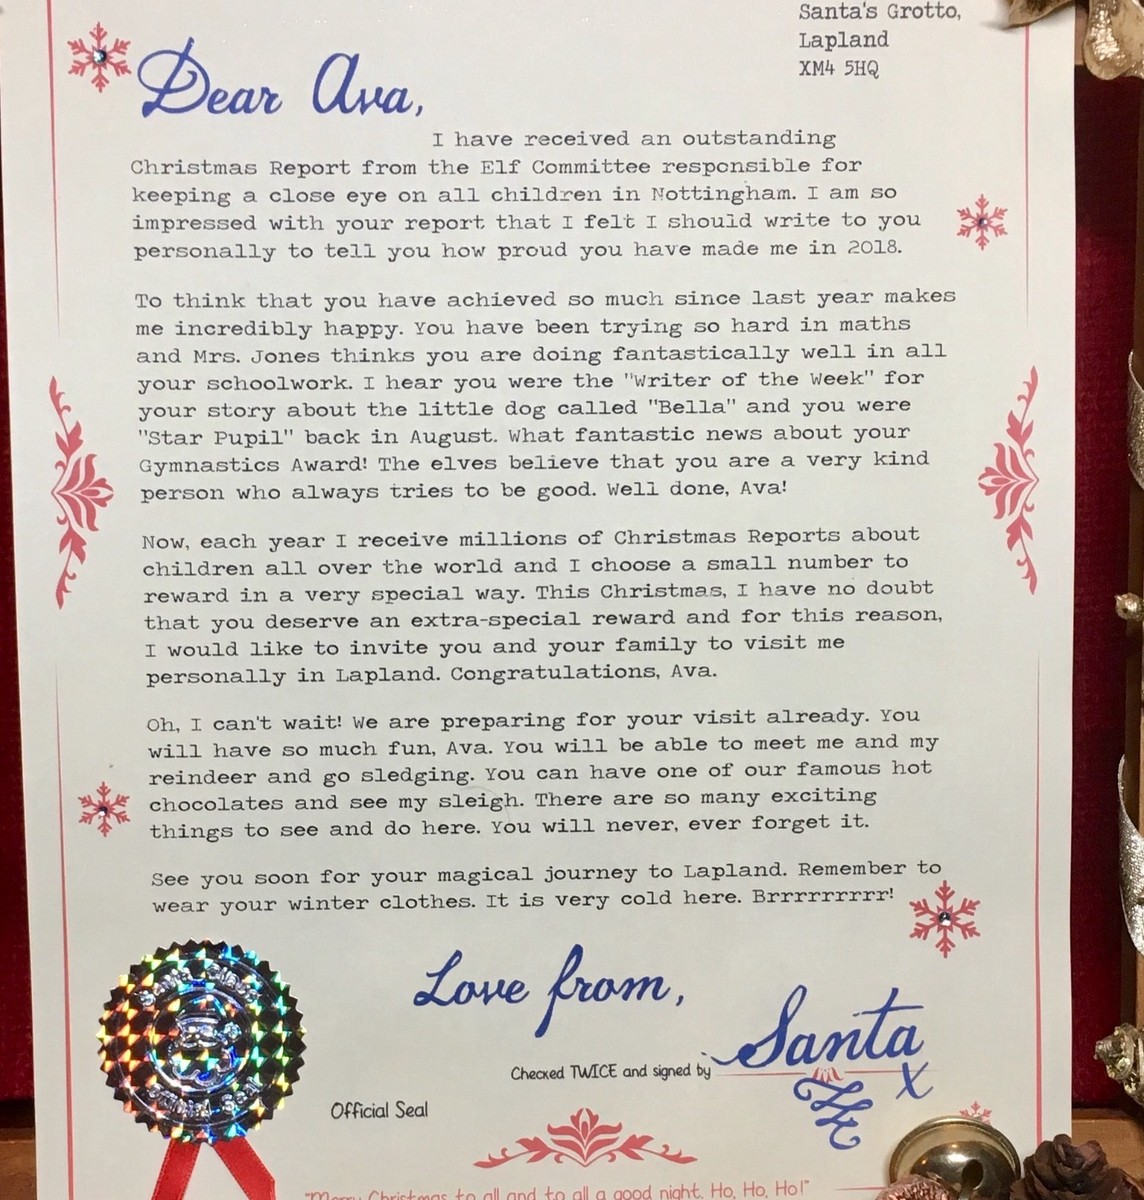 Santa's Grotto,
Lapland
XM4 5HQ
Dear Ava,
I have received an outstanding
Christmas Report from the Elf Committee responsible for
keeping a close eye on all children in Nottingham. I am so
impressed with your report that I felt I should write to you
personally to tell you how proud you have made me in 2018.
To think that you have achieved so much since last year makes
me incredibly happy. You have been trying so hard in maths
and Mrs. Jones thinks you are doing fantastically well in all
your schoolwork. I hear you were the "Writer of the Week" for
your story about the little dog called "Bella" and you were
"Star Pupil" back in August. What fantastic news about your
Gymnastics Award! The elves believe that you are a very kind
person who always tries to be good. Well done, Ava!
Now, each year I receive millions of Christmas Reports about
children all over the world and I choose a small number to
reward in a very special way. This Christmas, I have no doubt
that you deserve an extra-special reward and for this reason,
I would like to invite you and your family to visit me
personally in Lapland. Congratulations, Ava.
Oh, I can't wait! We are preparing for your visit already. You
will have so much fun, Ava. You will be able to meet me and my
reindeer and go sledging. You can have one of our famous hot
chocolates and see my sleigh. There are so many exciting
things to see and do here. You will never, ever forget it.
See you soon for your magical journey to Lapland. Remember to
wear your winter clothes. It is very cold here. Brrrrrrrrr!
Love from,
Santa
x
Checked TWICE and signed by
Official Seal
"Merry Christmas to all and to all a good night. Ho, Ho, Ho!"